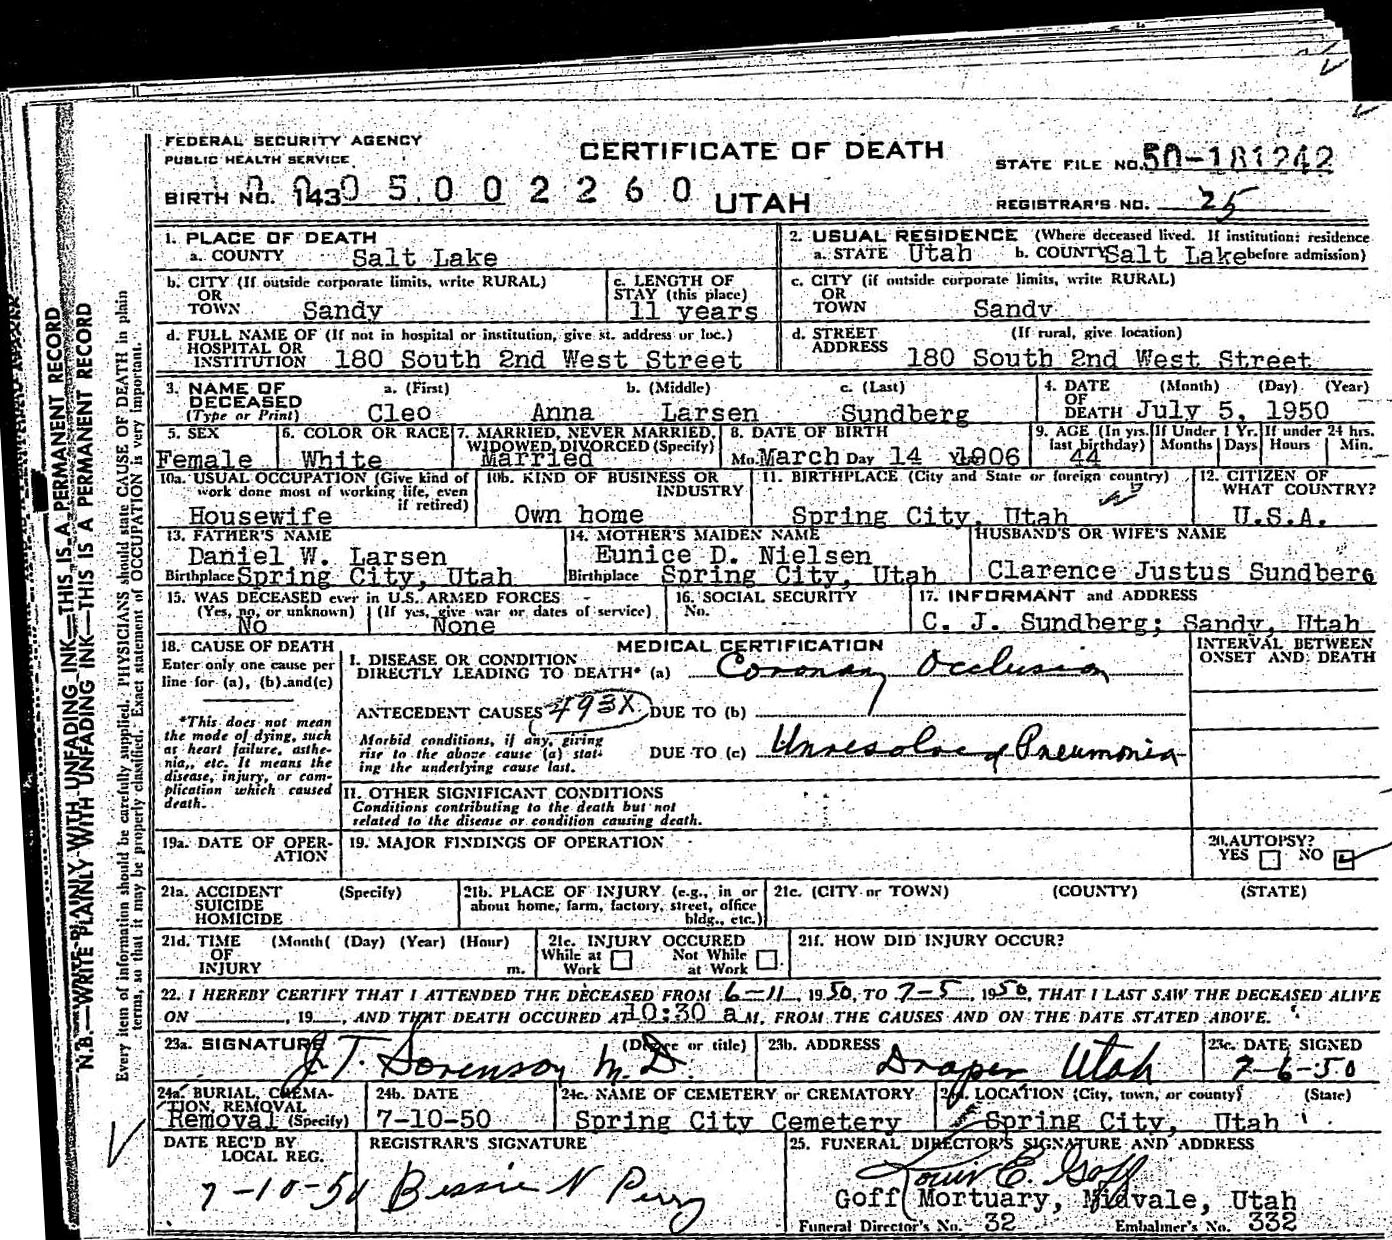 FEDERAL SECURITY AGENCY
PUBLIC HEALTH SERVICE
CERTIFICATE OF DEATH
STATE FILE NO. 50-181242
BIRTH NO. 143 0 5 0 0 2 2 6 0
UTAH
REGISTRAR'S NO. 25
1. PLACE OF DEATH
a. COUNTY Salt Lake
2. USUAL RESIDENCE (Where deceased lived. If institution: residence before admission)
a. STATE Utah b. COUNTY Salt Lake
b. CITY (If outside corporate limits, write RURAL)
OR
TOWN Sandy
c. LENGTH OF
STAY (this place)
11 years
c. CITY (if outside corporate limits, write RURAL)
OR
TOWN Sandy
d. FULL NAME OF (If not in hospital or institution, give st. address or loc.)
HOSPITAL OR
INSTITUTION 180 South 2nd West Street
d. STREET (If rural, give location)
ADDRESS 180 South 2nd West Street
3. NAME OF DECEASED a. (First) b. (Middle) c. (Last)
(Type or Print) Cleo Anna Larsen Sundberg
4. DATE (Month) (Day) (Year)
OF
DEATH July 5, 1950
5. SEX
Female
6. COLOR OR RACE
White
7. MARRIED, NEVER MARRIED,
WIDOWED, DIVORCED (Specify)
Married
8. DATE OF BIRTH
Mo. March Day 14 1906
9. AGE (In yrs. last birthday) 44
If Under 1 Yr. Months Days
If under 24 hrs. Hours Min.
10a. USUAL OCCUPATION (Give kind of
work done most of working life, even
if retired)
Housewife
10b. KIND OF BUSINESS OR
INDUSTRY
Own home
11. BIRTHPLACE (City and State or foreign country)
Spring City, Utah
12. CITIZEN OF
WHAT COUNTRY?
U.S.A.
13. FATHER'S NAME
Daniel W. Larsen
Birthplace Spring City, Utah
14. MOTHER'S MAIDEN NAME
Eunice D. Nielsen
Birthplace Spring City, Utah
HUSBAND'S OR WIFE'S NAME
Clarence Justus Sundberg
15. WAS DECEASED ever in U.S. ARMED FORCES
(Yes, no, or unknown) (If yes, give war or dates of service)
No None
16. SOCIAL SECURITY
No.
17. INFORMANT and ADDRESS
C. J. Sundberg; Sandy, Utah
18. CAUSE OF DEATH
Enter only one cause per
line for (a), (b) and (c)
*This does not mean
the mode of dying, such
as heart failure, asthe-
nia, etc. It means the
disease, injury, or com-
plication which caused
death.
MEDICAL CERTIFICATION
I. DISEASE OR CONDITION
DIRECTLY LEADING TO DEATH* (a) Coronary Occlusion
ANTECEDENT CAUSES 493X DUE TO (b)
Morbid conditions, if any, giving
rise to the above cause (a) stat-
ing the underlying cause last.
DUE TO (c) Unresolved Pneumonia
INTERVAL BETWEEN
ONSET AND DEATH
II. OTHER SIGNIFICANT CONDITIONS
Conditions contributing to the death but not
related to the disease or condition causing death.
19a. DATE OF OPER-
ATION
19. MAJOR FINDINGS OF OPERATION
20. AUTOPSY?
YES NO
21a. ACCIDENT (Specify)
SUICIDE
HOMICIDE
21b. PLACE OF INJURY (e.g., in or
about home, farm, factory, street, office
bldg., etc.)
21c. (CITY or TOWN) (COUNTY) (STATE)
21d. TIME (Month( (Day) (Year) (Hour)
OF
INJURY m.
21e. INJURY OCCURED
While at Work Not While at Work
21f. HOW DID INJURY OCCUR?
22. I HEREBY CERTIFY THAT I ATTENDED THE DECEASED FROM 6-11, 1950, TO 7-5, 1950, THAT I LAST SAW THE DECEASED ALIVE
ON , 19 , AND THAT DEATH OCCURED AT 10:30 a M. FROM THE CAUSES AND ON THE DATE STATED ABOVE.
23a. SIGNATURE (Degree or title)
J. T. Sorenson M.D.
23b. ADDRESS
Draper Utah
23c. DATE SIGNED
7-6-50
24a. BURIAL, CREMA-
TION, REMOVAL
Removal (Specify)
24b. DATE
7-10-50
24c. NAME OF CEMETERY OR CREMATORY
Spring City Cemetery
24d. LOCATION (City, town, or county) (State)
Spring City, Utah
DATE REC'D BY
LOCAL REG.
7-10-50
REGISTRAR'S SIGNATURE
Bessie N Perry
25. FUNERAL DIRECTOR'S SIGNATURE AND ADDRESS
Louis E. Goff
Goff Mortuary, Midvale, Utah
Funeral Director's No. 32 Embalmer's No. 332
N.B.—WRITE PLAINLY WITH UNFADING INK—THIS IS A PERMANENT RECORD
Every item of information should be carefully supplied. PHYSICIANS should state CAUSE OF DEATH in plain
terms, so that it may be properly classified. Exact statement of OCCUPATION is very important.